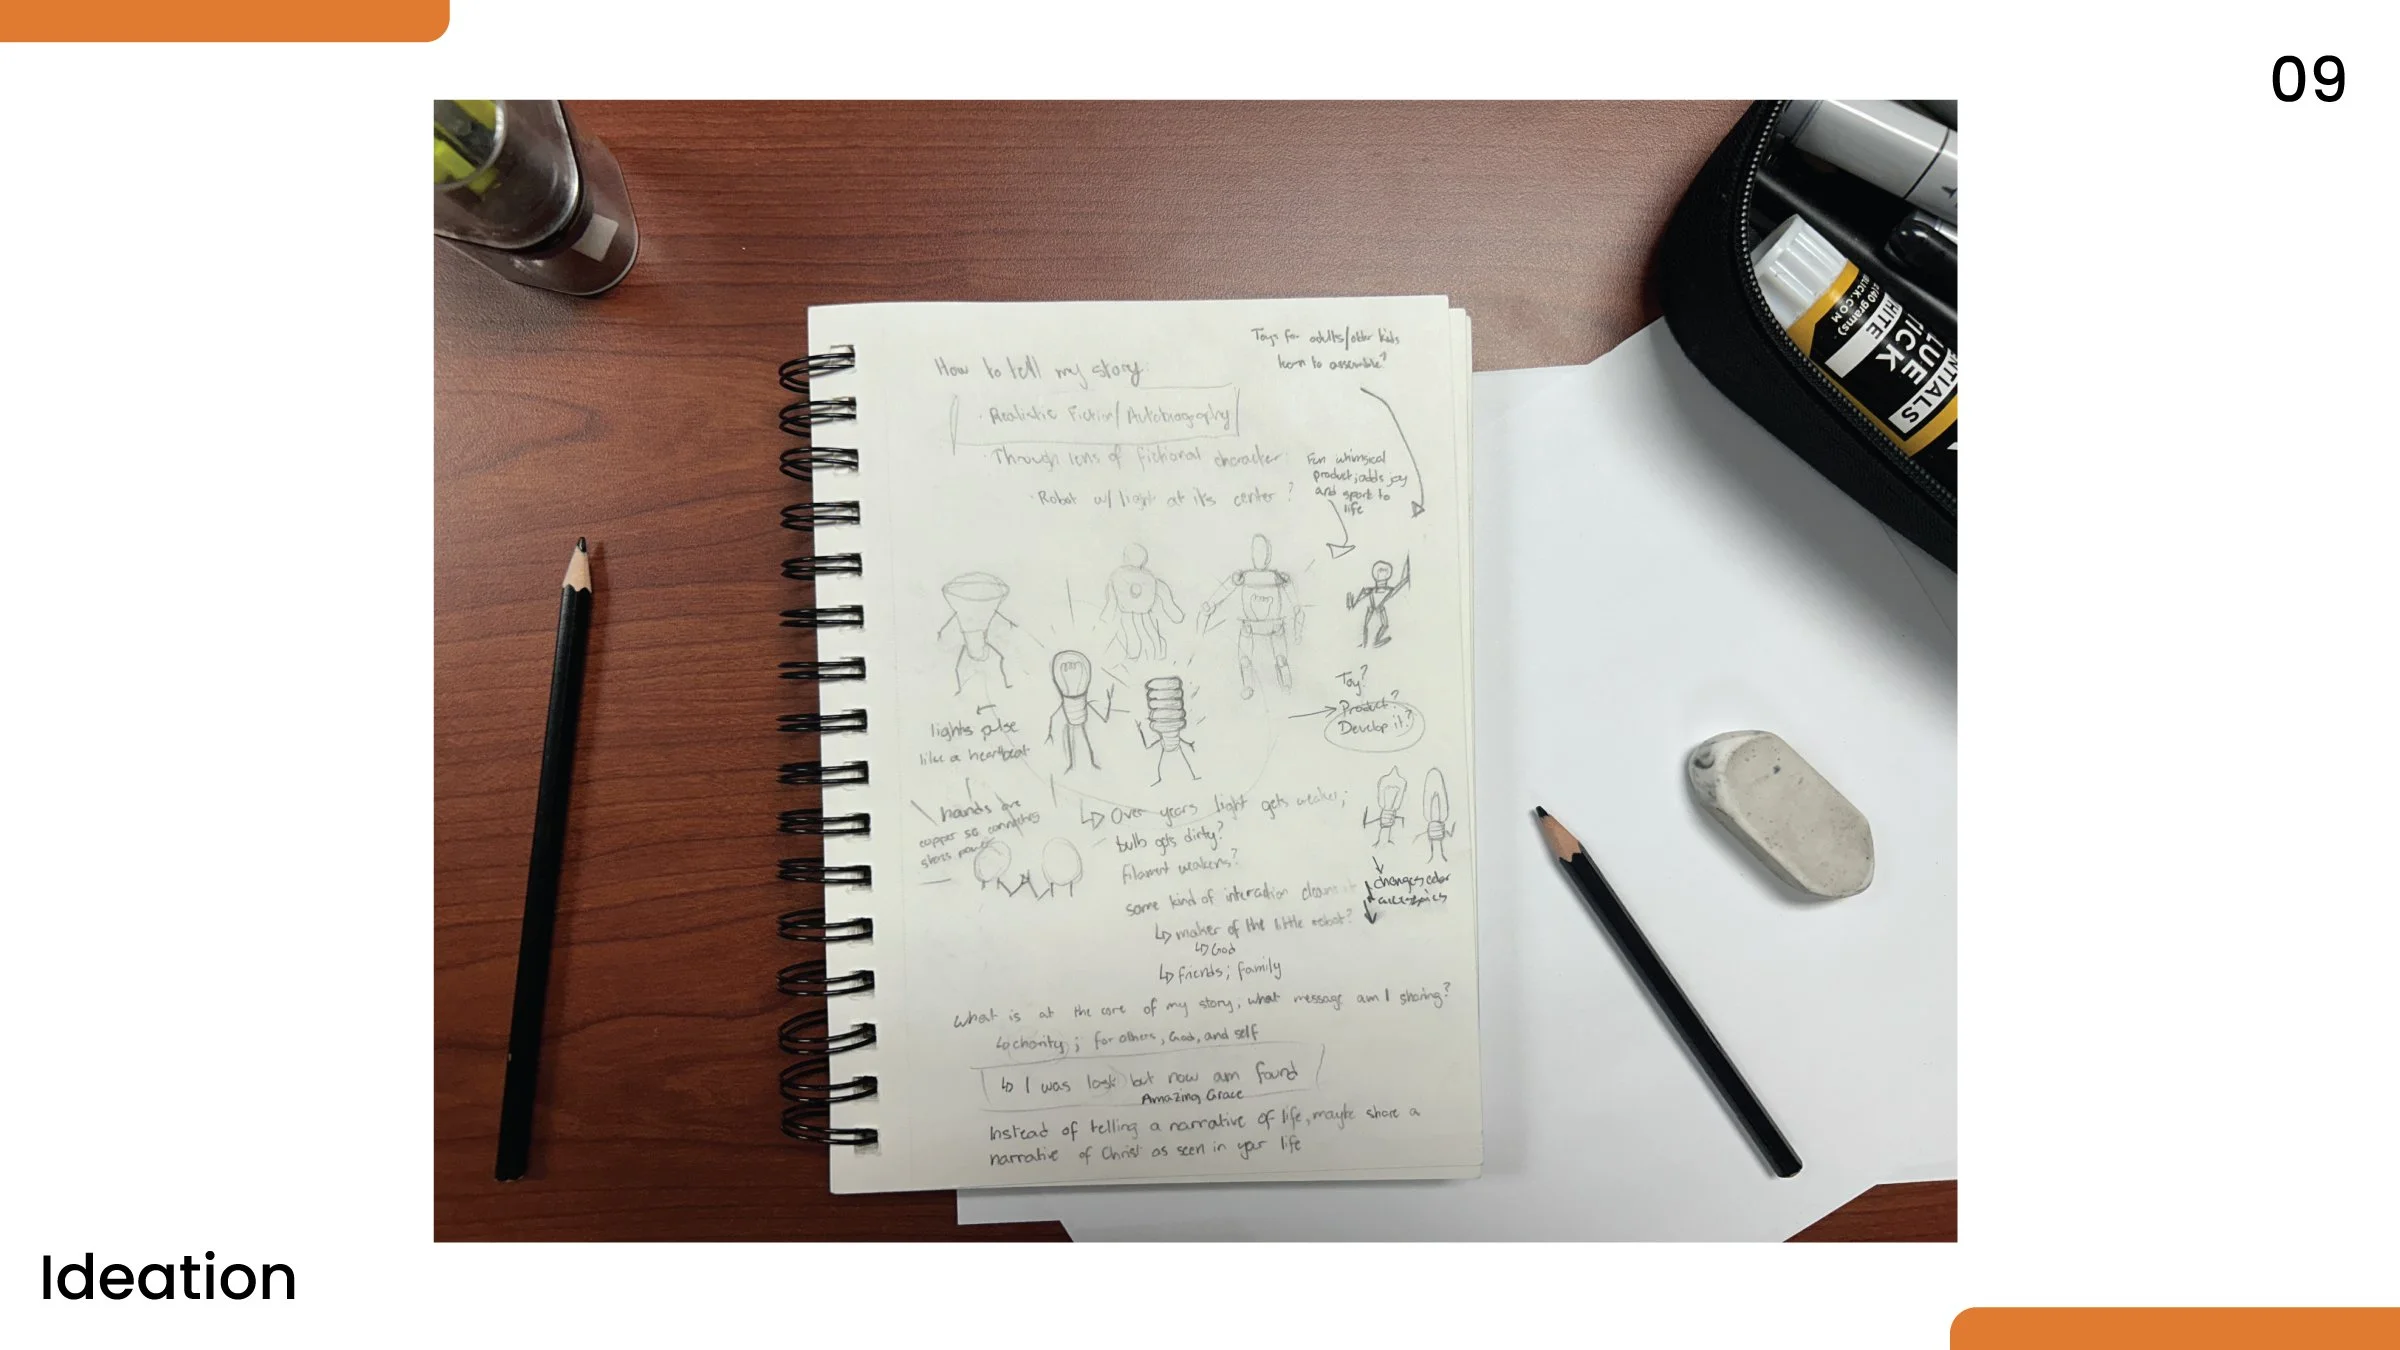 09
How to tell my story:
Toys for adults/older kids
learn to assemble?
· Realistic Fiction/Autobiography
· Through lens of fictional character
· Robot w/light at its center?
Fun whimsical
product, adds joy
and spark to
life
lights pulse
like a heartbeat
hands are
copper so connecting
shares power
Toy?
Product?
Develop it?
Over years light gets weaker;
bulb gets dirty?
filament weakens?
some kind of interaction cleans it
maker of the little robot?
God
friends; family
changes color
What is at the core of my story, what message am I sharing?
charity; for others, God, and self
I was lost but now am found
Amazing Grace
Instead of telling a narrative of life, maybe share a
narrative of Christ as seen in your life
(40 grams)
ICK.COM
HITE
ICK
LUE
NTIALS
Ideation